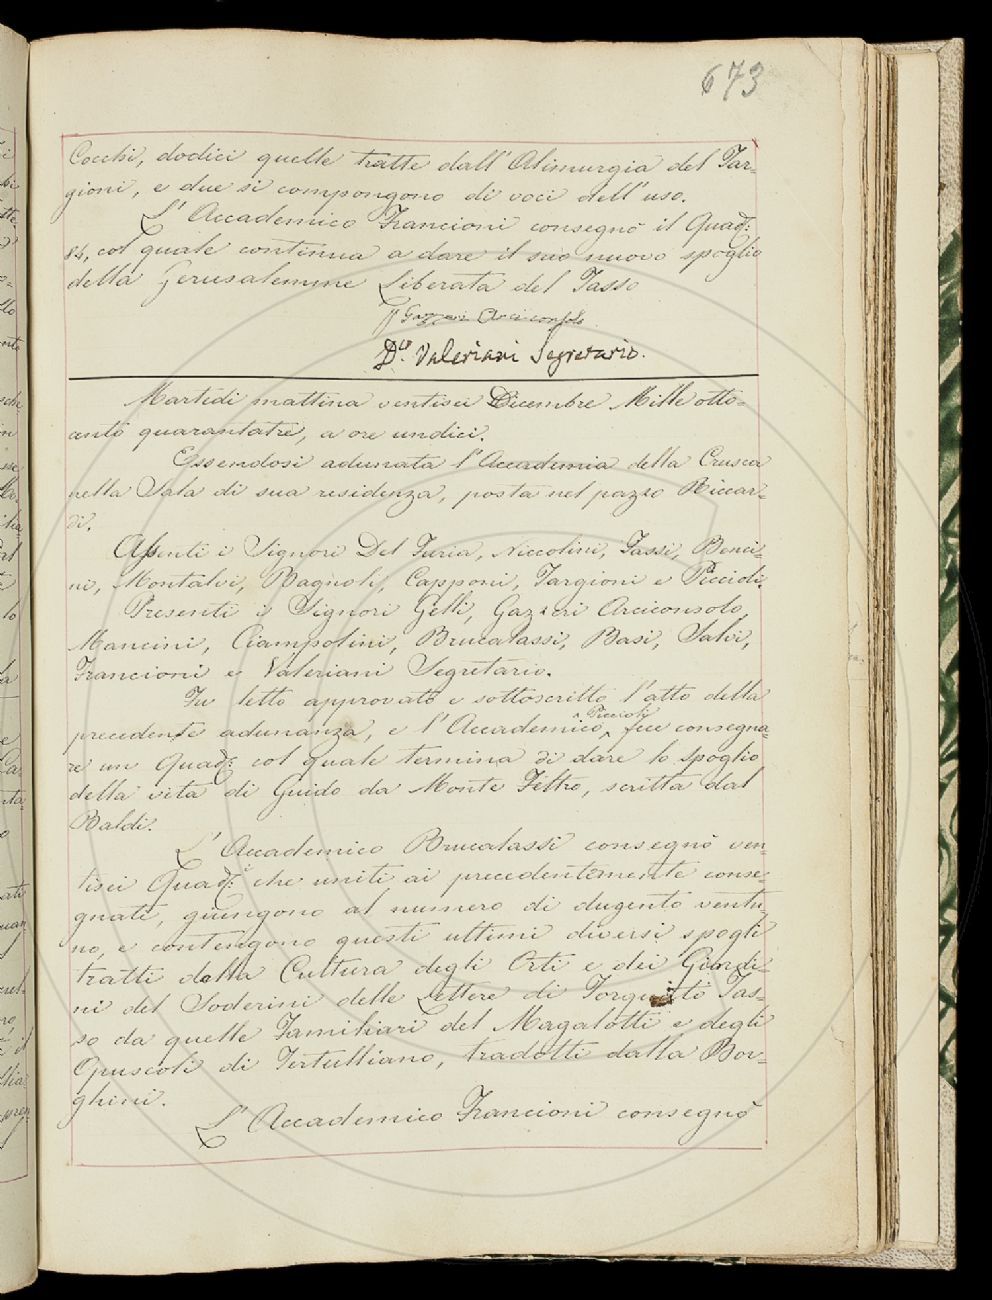 673
Cocchi, dodici quelle tratte dall'Alimurgia del Tar-
gioni, e due si compongono di voci dell'uso.
L'Accademico Francioni consegnò il Quad:
84, col quale continua a dare il suo nuovo spoglio
della Gerusalemme Liberata del Tasso
G Gazzeri Arciconsolo
Dr. Valeriani Segretario.
Martedì mattina ventisei Dicembre Mille otto-
cento quarantatre, a ore undici.
Essendosi adunata l'Accademia della Crusca
nella Sala di sua residenza, posta nel pazzo Riccar-
di.
Assenti i Signori Del Furia, Niccolini, Tassi, Benci-
ni, Montalvi, Bagnoli, Capponi, Targioni e Piccioli.
Presenti i Signori Gelli, Gazzeri Arciconsolo,
Mancini, Ciampolini, Brucalassi, Basi, Salvi,
Francioni e Valeriani Segretario.
Fu letto approvato e sottoscritto l'atto della
precedente adunanza, e l'Accademico Piccioli fece consegna-
re un Quad: col quale termina di dare lo spoglio
della vita di Guido da Monte Feltro, scritta dal
Baldi.
L'Accademico Brucalassi consegnò ven-
tisei Quad: che uniti ai precedentemente conse-
gnati, giungono al numero di dugento ventu-
no, e contengono questi ultimi diversi spogli
tratti dalla Cultura degli Orti e dei Giardi-
ni del Soderini delle Lettere di Torquato Tas-
so da quelle Familiari del Magalotti e degli
Opuscoli di Tertulliano, tradotti dalla Bor-
ghini.
L'Accademico Francioni consegnò